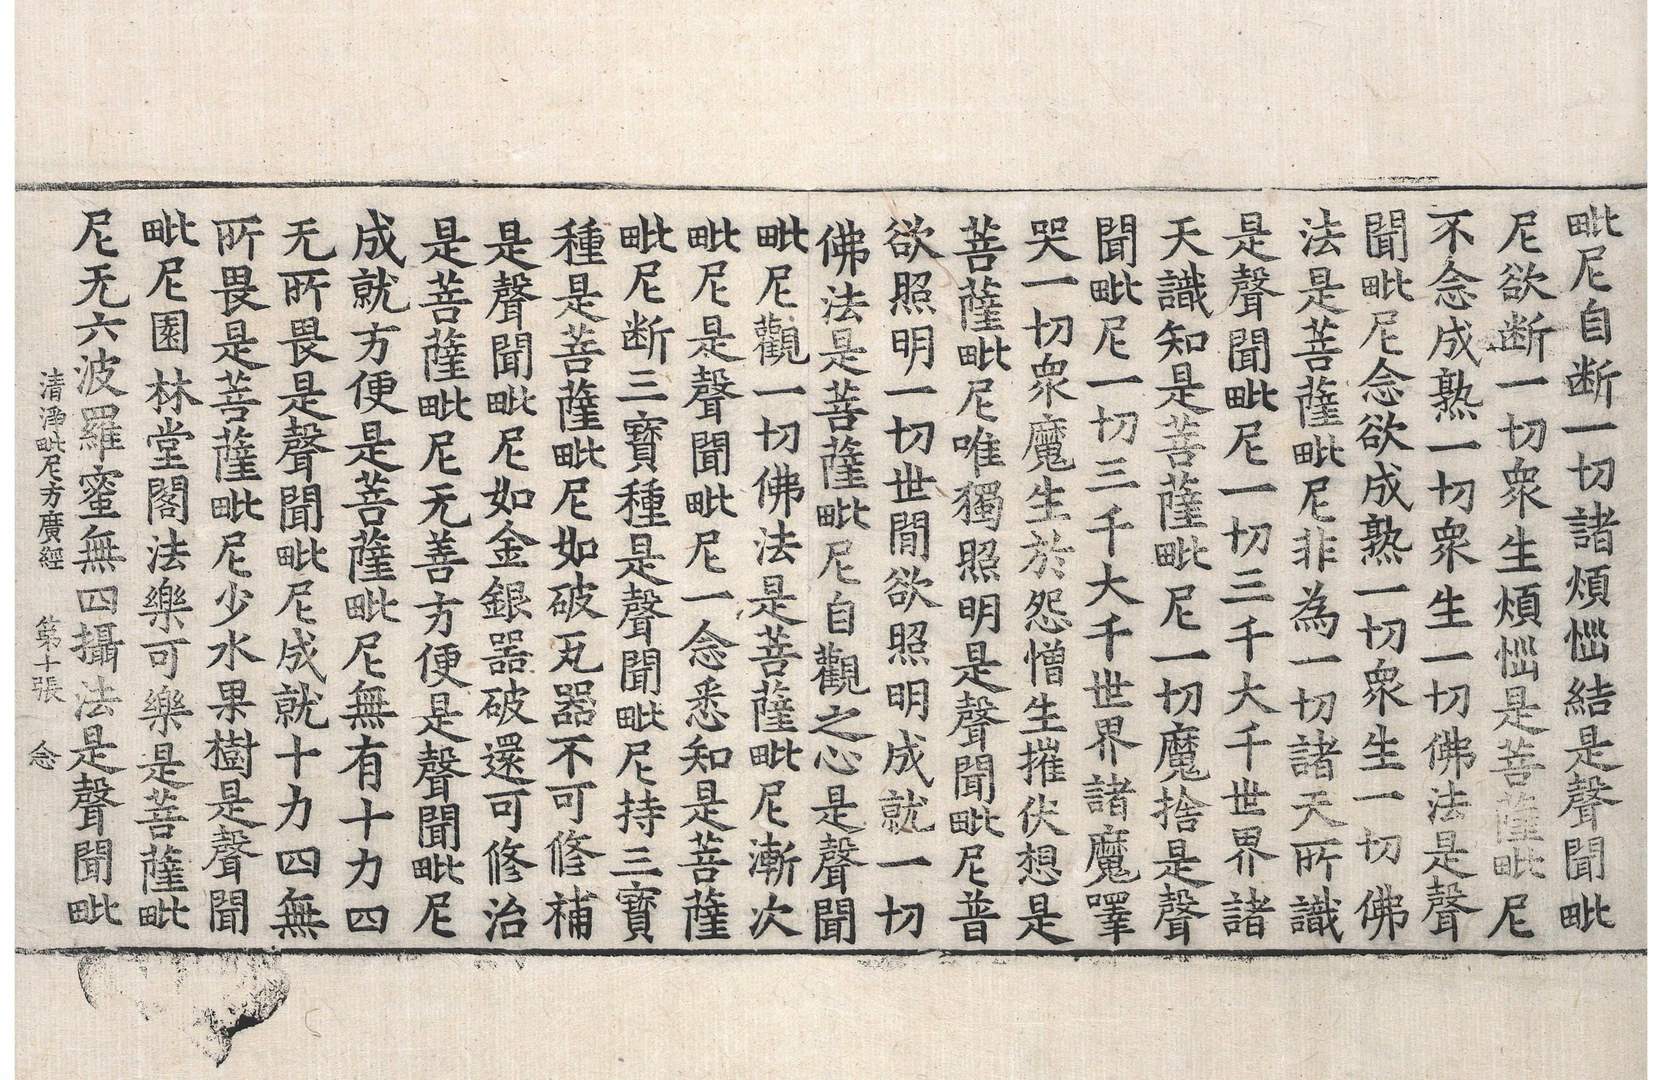 毗尼自断一切諸煩惱結是聲聞毗
尼欲断一切衆生煩惱是菩薩毗尼
不念成熟一切衆生一切佛法是聲
聞毗尼念欲成熟一切衆生一切佛
法是菩薩毗尼非為一切諸天所識
是聲聞毗尼一切三千大千世界諸
天識知是菩薩毗尼一切魔捨是聲
聞毗尼一切三千大千世界諸魔㘁
哭一切衆魔生於怨憎生摧伏想是
菩薩毗尼唯獨照明是聲聞毗尼普
欲照明一切世間欲照明成就一切
佛法是菩薩毗尼自觀之心是聲聞
毗尼觀一切佛法是菩薩毗尼漸次
毗尼是聲聞毗尼一念悉知是菩薩
毗尼断三寶種是聲聞毗尼持三寶
種是菩薩毗尼如破瓦器不可修補
是聲聞毗尼如金銀器破還可修治
是菩薩毗尼无善方便是聲聞毗尼
成就方便是菩薩毗尼無有十力四
无所畏是聲聞毗尼成就十力四無
所畏是菩薩毗尼少水果樹是聲聞
毗尼園林堂閣法樂可樂是菩薩毗
尼无六波羅蜜無四攝法是聲聞毗
清淨毗尼方廣經 第十張 念